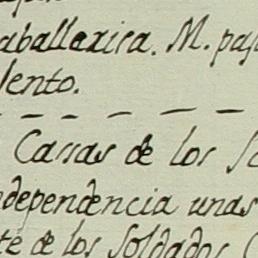 aballeriza. M. pas
lento.
Casas de los So
ndependencia unas
te de los Soldados. C